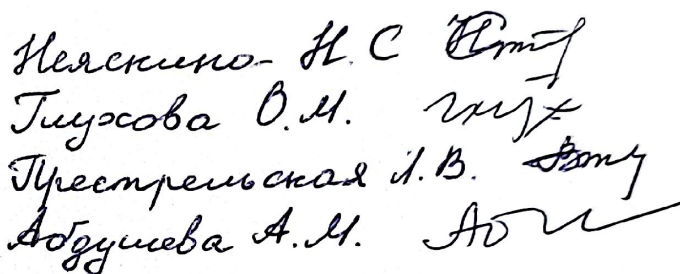 Неяскина Н. С
Глухова О. М.
Престрельская Л. В.
Абдушева А. М.